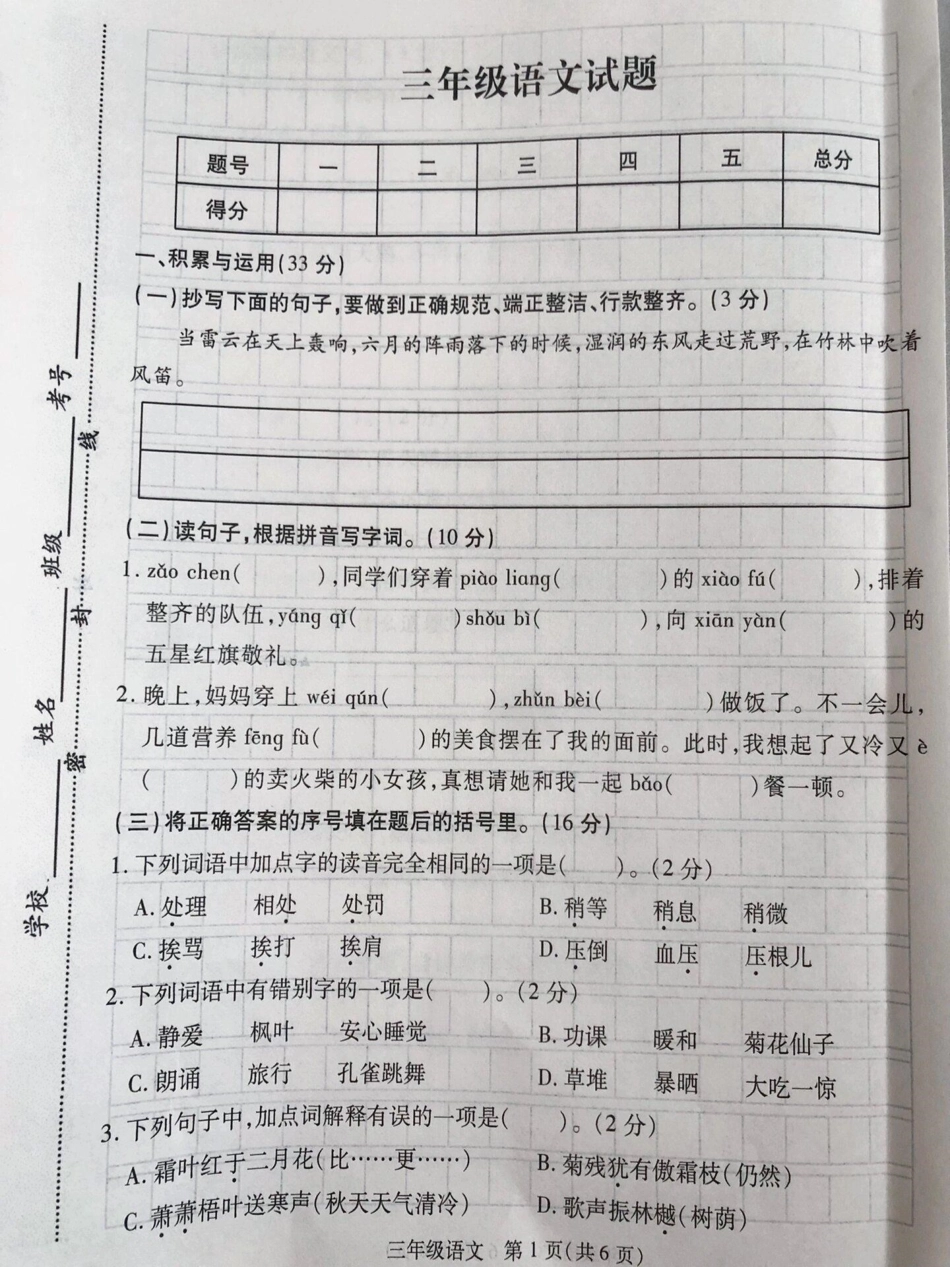 三年级语文试题
题号 一 二 三 四 五 总分
得分
一、积累与运用(33 分)
(一)抄写下面的句子,要做到正确规范、端正整洁、行款整齐。(3 分)
当雷云在天上轰响,六月的阵雨落下的时候,湿润的东风走过荒野,在竹林中吹着
风笛。
(二)读句子,根据拼音写字词。(10 分)
1. zǎo chen( ),同学们穿着 piào liang( )的 xiào fú( ),排着
整齐的队伍,yáng qǐ( )shǒu bì( ),向 xiān yàn( )的
五星红旗敬礼。
2. 晚上,妈妈穿上 wéi qún( ),zhǔn bèi( )做饭了。不一会儿,
几道营养 fēng fù( )的美食摆在了我的面前。此时,我想起了又冷又 è
( )的卖火柴的小女孩,真想请她和我一起 bǎo( )餐一顿。
(三)将正确答案的序号填在题后的括号里。(16 分)
1. 下列词语中加点字的读音完全相同的一项是( )。(2 分)
A. 处理 相处 处罚 B. 稍等 稍息 稍微
C. 挨骂 挨打 挨肩 D. 压倒 血压 压根儿
2. 下列词语中有错别字的一项是( )。(2 分)
A. 静爱 枫叶 安心睡觉 B. 功课 暖和 菊花仙子
C. 朗诵 旅行 孔雀跳舞 D. 草堆 暴晒 大吃一惊
3. 下列句子中,加点词解释有误的一项是( )。(2 分)
A. 霜叶红于二月花(比……更……) B. 菊残犹有傲霜枝(仍然)
C. 萧萧梧叶送寒声(秋天天气清冷) D. 歌声振林樾(树荫)
三年级语文 第 1 页(共 6 页)
学校 姓名 班级 考号
密 封 线